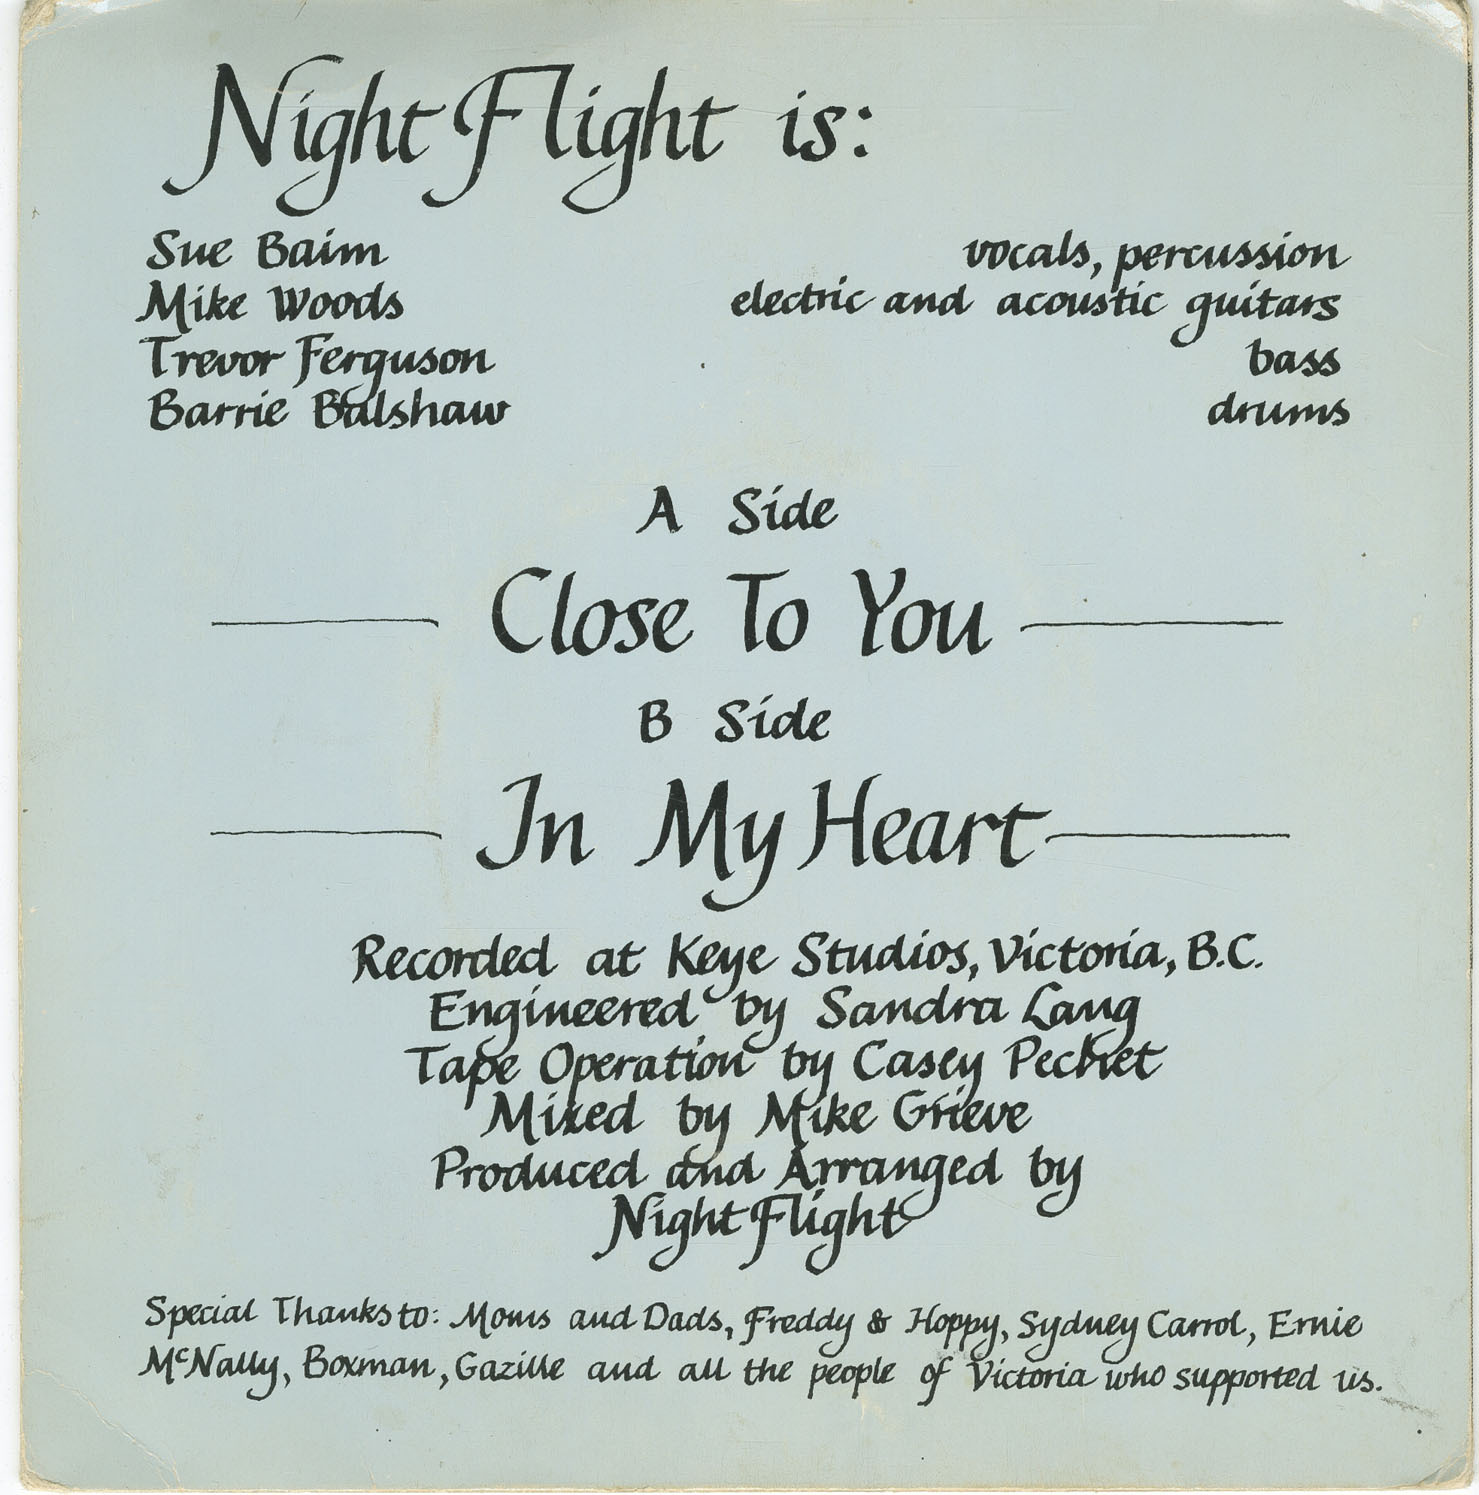 Night Flight is:
Sue Baim vocals, percussion
Mike Woods electric and acoustic guitars
Trevor Ferguson bass
Barrie Balshaw drums
A Side
Close To You
B Side
In My Heart
Recorded at Keye Studios, Victoria, B.C.
Engineered by Sandra Lang
Tape Operation by Casey Pechet
Mixed by Mike Grieve
Produced and Arranged by
Night Flight
Special Thanks to: Moms and Dads, Freddy & Hoppy, Sydney Carrol, Ernie
McNally, Boxman, Gazille and all the people of Victoria who supported us.